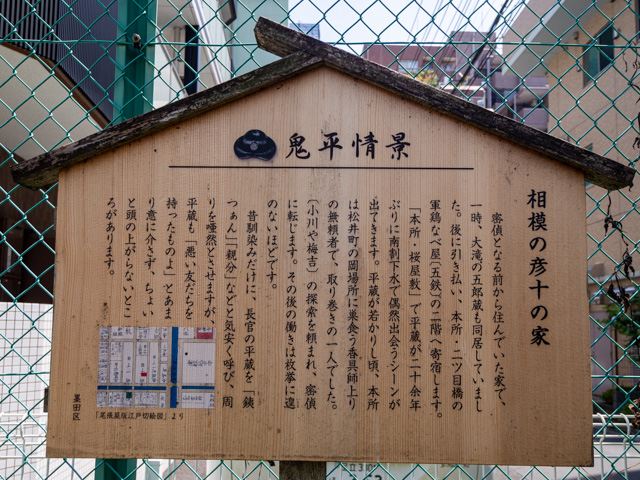 鬼平情景
相模の彦十の家
密偵となる前から住んでいた家で、
一時、大滝の五郎蔵も同居していまし
た。後に引き払い、本所・二ツ目橋の
軍鶏なべ屋〔五鉄〕の二階へ寄宿します。
「本所・桜屋敷」で平蔵が二十余年
ぶりに南割下水で偶然出会うシーンが
出てきます。平蔵が若かりし頃、本所
は松井町の岡場所に巣食う香具師上り
の無頼者で、取り巻きの一人でした。
〔小川や梅吉〕の探索を頼まれ、密偵
に転じます。その後の働きは枚挙に遑
のないほどです。
昔馴染みだけに、長官の平蔵を「銕
つぁん」「親分」などと気安く呼び、周
りを唖然とさせますが、
平蔵も「悪い友だちを
持ったものよ」とあま
り意に介さず、ちょい
と頭の上がらないとこ
ろがあります。
「尾張屋版江戸切絵図」より
墨田区